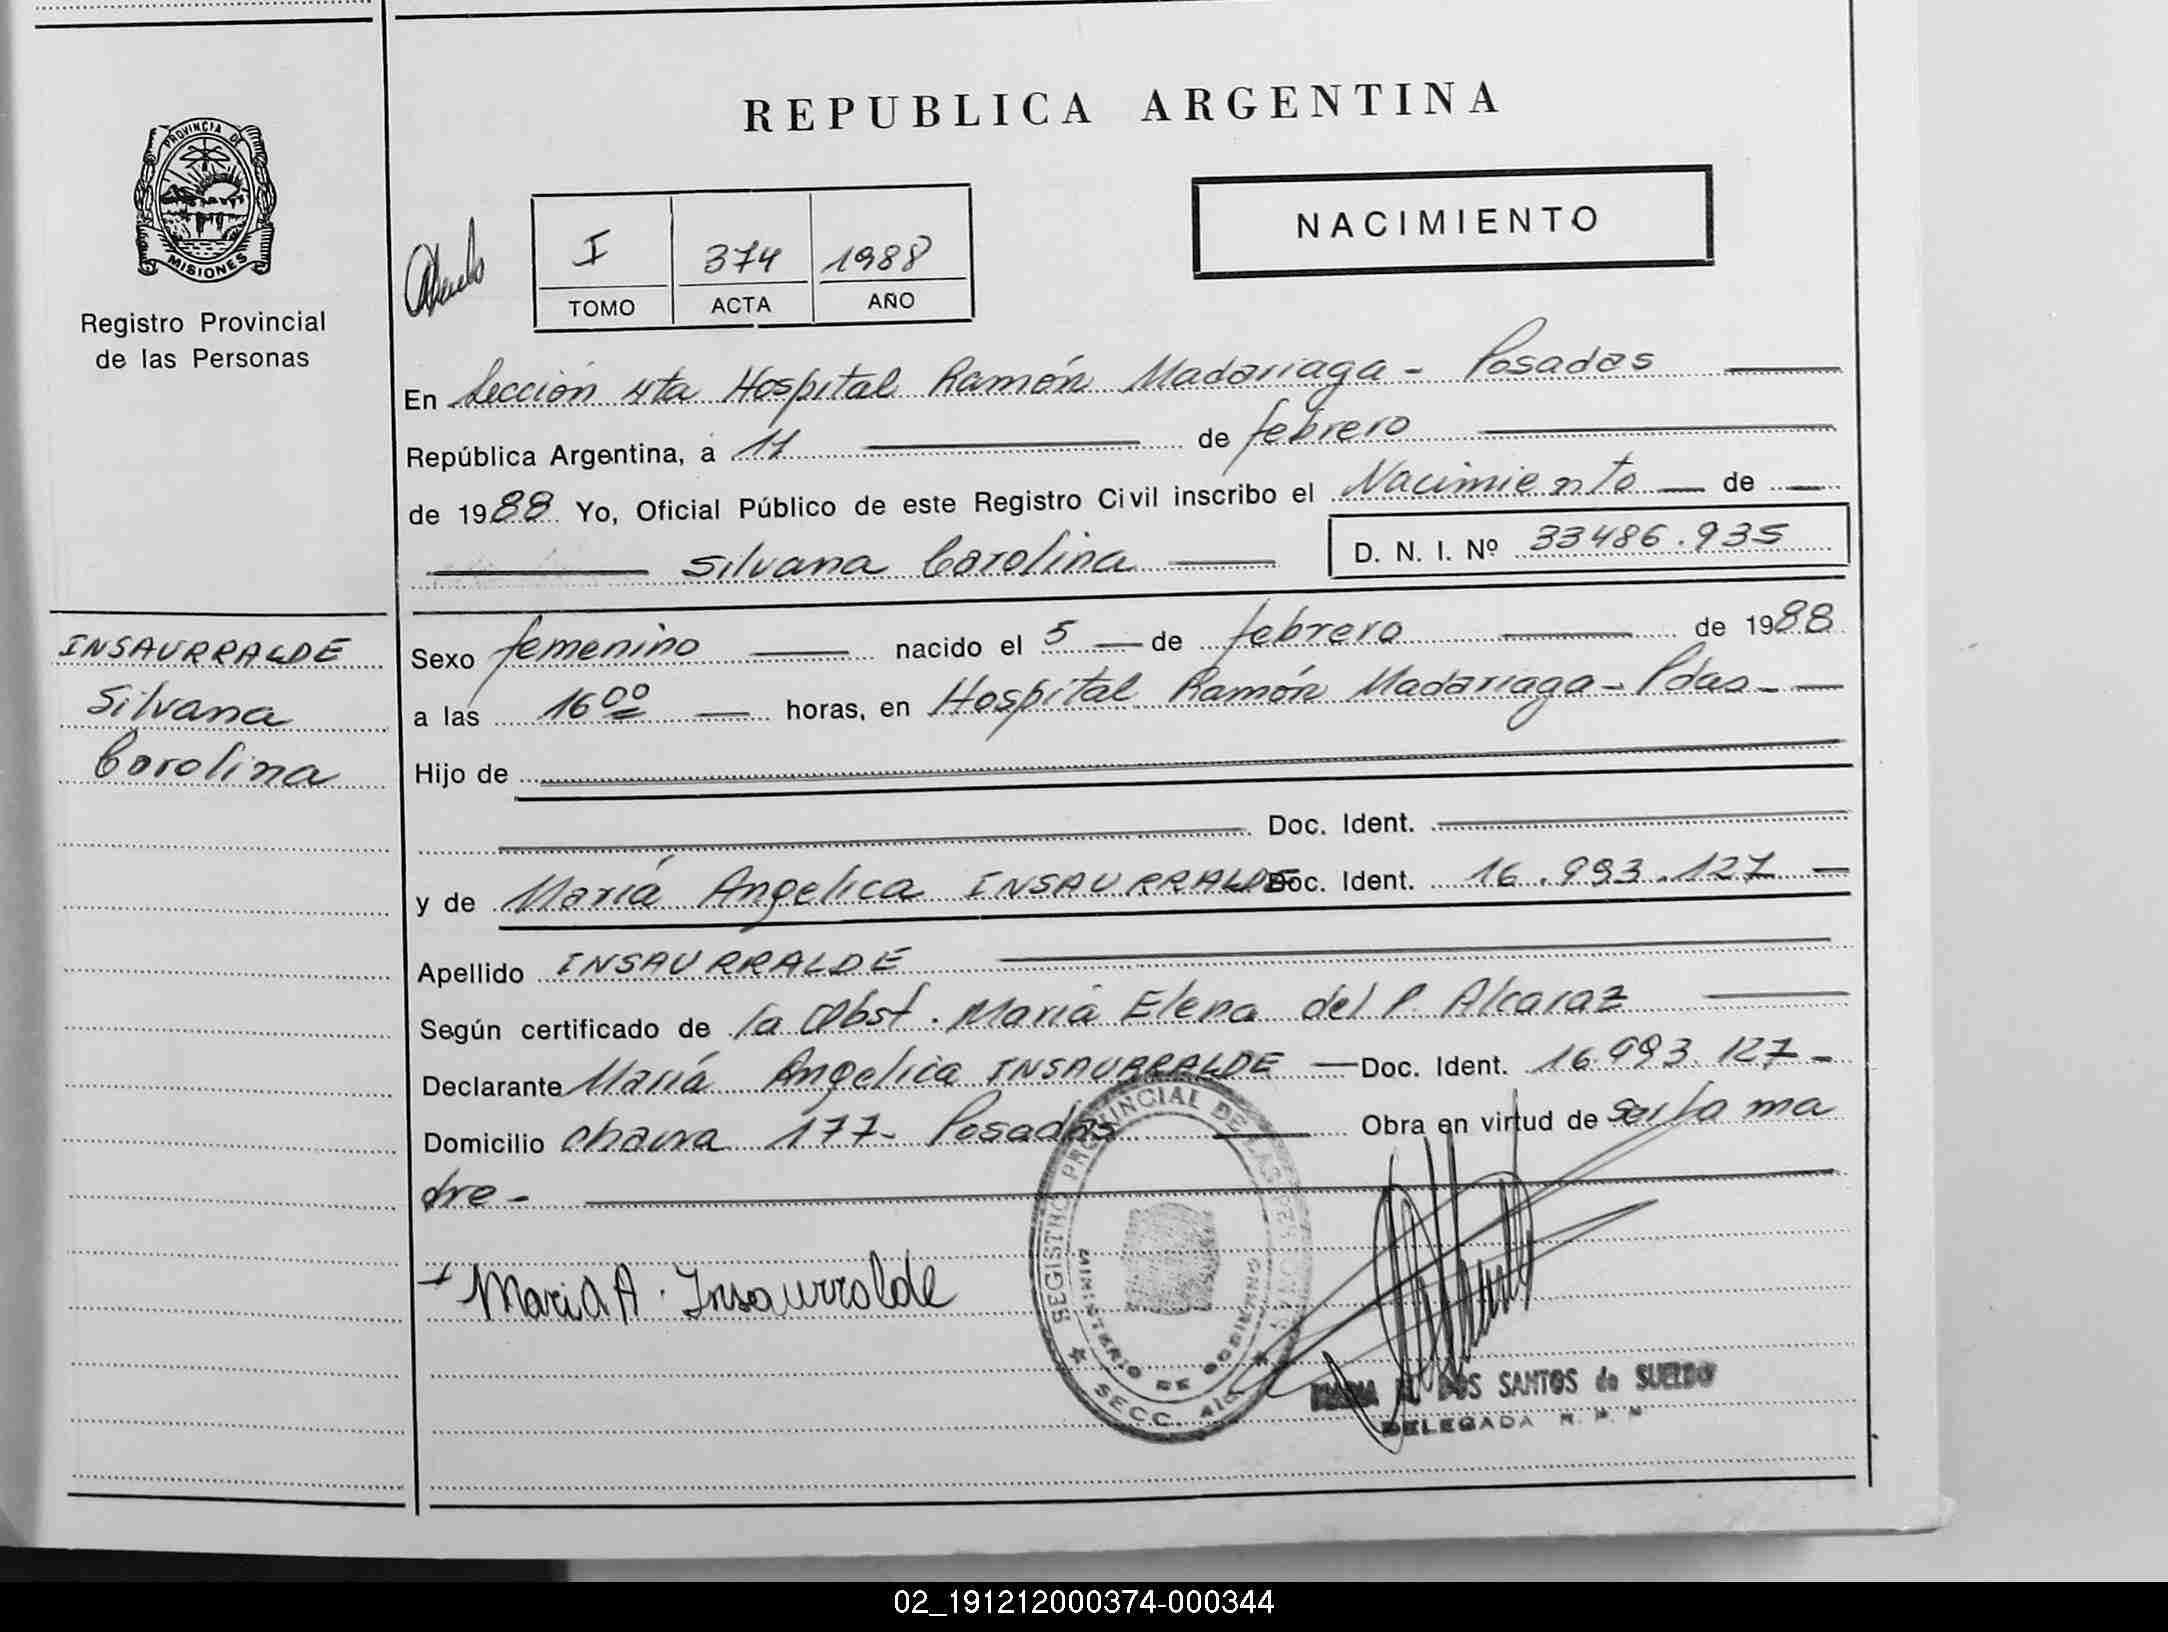 REPUBLICA ARGENTINA
PROVINCIA DE MISIONES
Registro Provincial
de las Personas
NACIMIENTO
I 374 1988
TOMO ACTA AÑO
En Sección 4ta Hospital Ramón Madariaga - Posadas
República Argentina, a 11 de febrero
de 1988 Yo, Oficial Público de este Registro Civil inscribo el Nacimiento de
Silvana Carolina D. N. I. Nº 33486.935
INSAURRALDE
Silvana
Carolina
Sexo femenino nacido el 5 de febrero de 1988
a las 16 00 horas, en Hospital Ramón Madariaga - Pdas -
Hijo de
Doc. Ident.
y de María Angelica INSAURRALDE Doc. Ident. 16.993.127
Apellido INSAURRALDE
Según certificado de la Obst. María Elena del P. Alcaraz
Declarante María Angelica INSAURRALDE Doc. Ident. 16.993.127 -
Domicilio 177- Posadas Obra en virtud de ser la ma
dre -
Maria A. Insaurralde
REGISTRO PROVINCIAL DE LAS PERSONAS
MINISTERIO DE GOBIERNO
SECC.
DOS SANTOS de SUELDO
DELEGADA
02_191212000374-000344